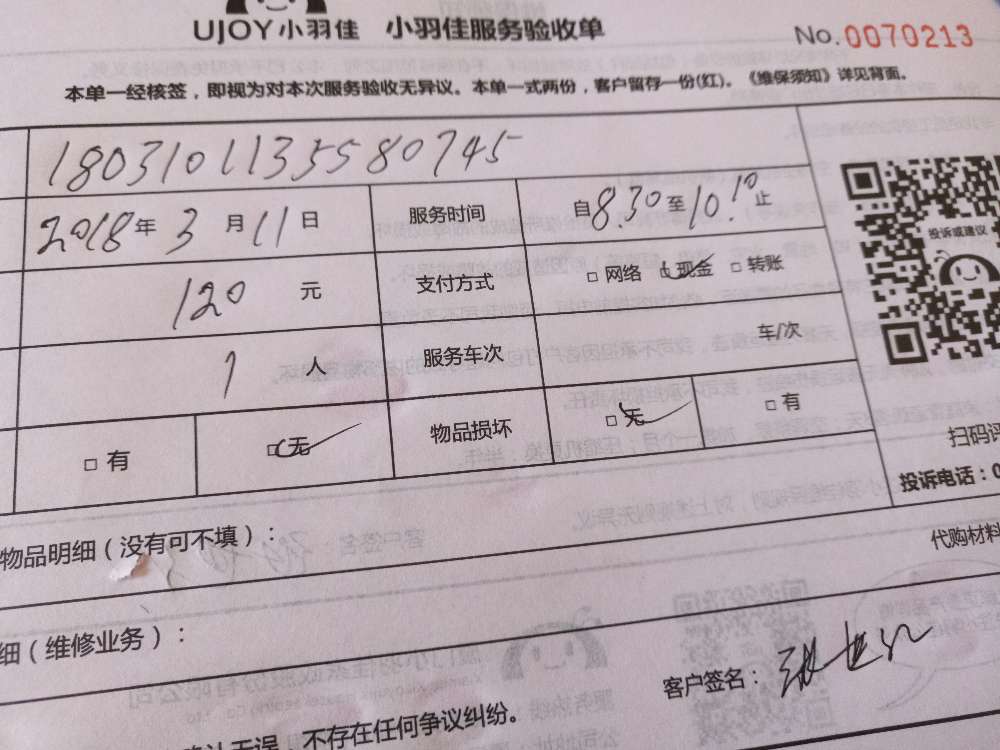 UJOY小羽佳 小羽佳服务验收单
No.0070213
本单一经核签，即视为对本次服务验收无异议。本单一式两份，客户留存一份(红)。《维保须知》详见背面。
18031011355580745
2018年3月11日 服务时间 自830至10:10止
120元 支付方式 □网络 □现金 □转账
1人 服务车次 车/次
□有 □无 物品损坏 □无 □有
投诉或建议
扫码评
投诉电话：0
物品明细（没有可不填）：
代购材料
细（维修业务）：
客户签名：
确认无误，不存在任何争议纠纷。